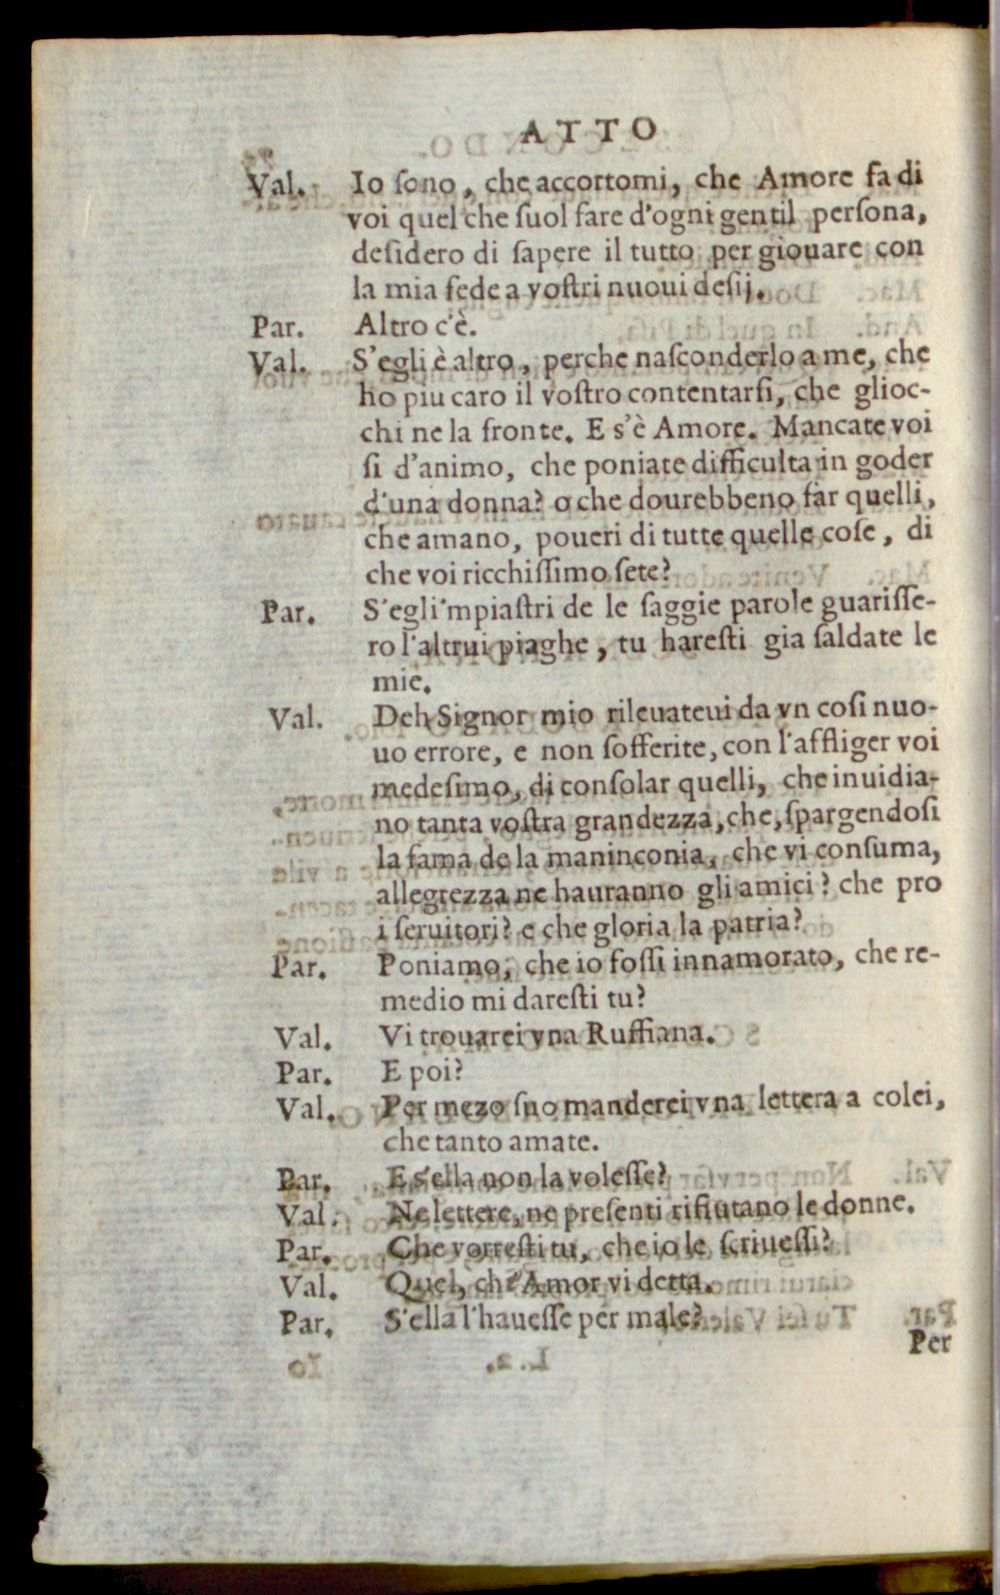 ATTO
Val. Io ſono, che accortomi, che Amore fa di
voi quel che ſuol fare d'ogni gentil perſona,
deſidero di ſapere il tutto per giouare con
la mia fede a voſtri nuoui deſij.
Par. Altro c'è.
Val. S'egli è altro, perche naſconderlo a me, che
ho piu caro il voſtro contentarſi, che glioc-
chi ne la fronte. E s'è Amore. Mancate voi
ſi d'animo, che poniate difficulta in goder
d'una donna? o che dourebbeno far quelli,
che amano, poueri di tutte quelle coſe, di
che voi ricchiſſimo ſete?
Par. S'egli'mpiaſtri de le ſaggie parole guariſſe-
ro l'altrui piaghe, tu hareſti gia ſaldate le
mie.
Val. Deh Signor mio rileuateui da vn coſi nuo-
uo errore, e non ſofferite, con l'affliger voi
medeſimo, di conſolar quelli, che inuidia-
no tanta voſtra grandezza, che, ſpargendoſi
la fama de la maninconia, che vi conſuma,
allegrezza ne hauranno gli amici? che pro
i ſeruitori? e che gloria la patria?
Par. Poniamo, che io foſſi innamorato, che re-
medio mi dareſti tu?
Val. Vi trouarei vna Ruffiana.
Par. E poi?
Val. Per mezo ſuo manderei vna lettera a colei,
che tanto amate.
Par. E s'ella non la voleſſe?
Val. Ne lettere, ne preſenti rifiutano le donne.
Par. Che vorreſti tu, che io le ſcriueſſi?
Val. Quel, ch'Amor vi detta.
Par. S'ella l'haueſſe per male?
Per